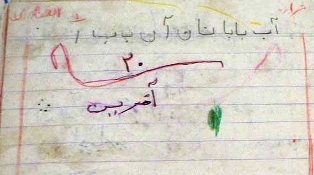 آب بابا نان آن ب ب ا
۲۰
آفرین